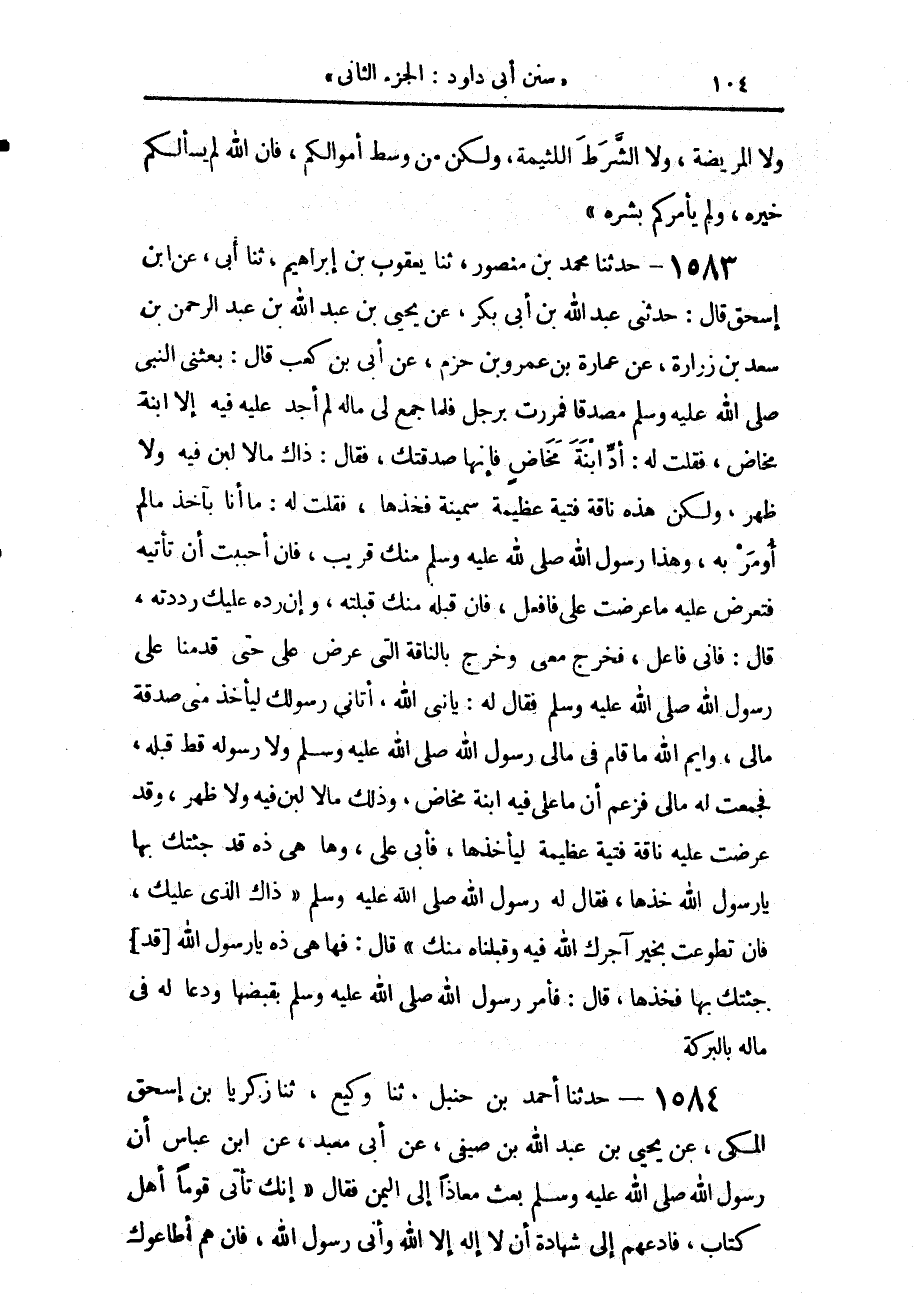 ١٠٤ «سنن أبى داود : الجزء الثانى»
ولا المريضة ، ولا الشَّرَطَ اللئيمة، ولكن من وسط أموالكم ، فان الله لم يسألكم
خيره ، ولم يأمركم بشره »
١٥٨٣ – حدثنا محمد بن منصور ، ثنا يعقوب بن إبراهيم ، ثنا أبى ، عن ابن
إسحق قال : حدثنى عبد الله بن أبى بكر ، عن يحيى بن عبد الله بن عبد الرحمن بن
سعد بن زرارة ، عن عمارة بن عمرو بن حزم ، عن أبى بن كعب قال : بعثنى النبى
صلى الله عليه وسلم مصدقا فمررت برجل فلما جمع لى ماله لم أجد عليه فيه إلا ابنة
مخاض ، فقلت له : أدِّ ابْنَةَ مَخَاضٍ فإنها صدقتك ، فقال : ذاك مالا لبن فيه ولا
ظهر ، ولكن هذه ناقة فتية عظيمة سمينة فخذها ، فقلت له : ما أنا بآخذ مالم
أُومَرْ به ، وهذا رسول الله صلى لله عليه وسلم منك قريب ، فان أحببت أن تأتيه
فتعرض عليه ماعرضت على فافعل ، فان قبله منك قبلته ، وإن رده عليك رددته ،
قال : فانى فاعل ، فخرج معى وخرج بالناقة التى عرض على حتى قدمنا على
رسول الله صلى الله عليه وسلم فقال له : يانبى الله ، أتاني رسولك ليأخذ منى صدقة
مالى ، وايم الله ما قام فى مالى رسول الله صلى الله عليه وسلم ولا رسوله قط قبله ،
فجمعت له مالى فزعم أن ماعلى فيه ابنة مخاض ، وذلك مالا لبن فيه ولا ظهر ، وقد
عرضت عليه ناقة فتية عظيمة ليأخذها ، فأبى على ، وها هى ذه قد جئتك بها
يارسول الله خذها ، فقال له رسول الله صلى الله عليه وسلم « ذاك الذى عليك ،
فان تطوعت بخير آجرك الله فيه وقبلناه منك » قال : فها هى ذه يارسول الله [قد]
جئتك بها فخذها ، قال : فأمر رسول الله صلى الله عليه وسلم بقبضها ودعا له فى
ماله بالبركة
١٥٨٤ — حدثنا أحمد بن حنبل ، ثنا وكيع ، ثنا زكريا بن إسحق
المكى ، عن يحيى بن عبد الله بن صيفى ، عن أبى معبد ، عن ابن عباس أن
رسول الله صلى الله عليه وسلم بعث معاذاً إلى اليمن فقال « إنك تأتى قوماً أهل
كتاب ، فادعهم إلى شهادة أن لا إله إلا الله وأنى رسول الله ، فان هم أطاعوك